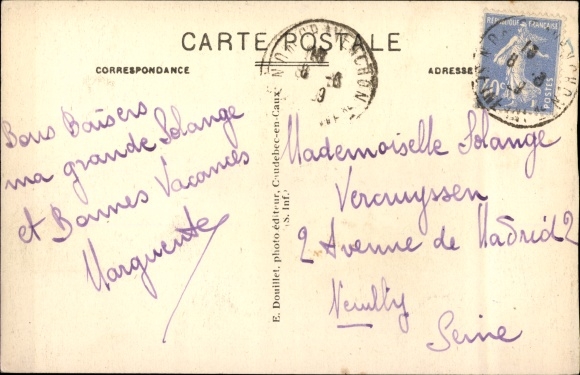 CARTE POSTALE
CORRESPONDANCE
ADRESSE
RÉPUBLIQUE FRANÇAISE
POSTES
Bons Baisers
ma grande Solange
et Bonnes Vacances
Marguerite
E. Douillet, photo éditeur, Caudebec-en-Caux
(S. Inf.)
Mademoiselle Solange
Vercruyssen
2 Avenue de Madrid 2
Neuilly
Seine